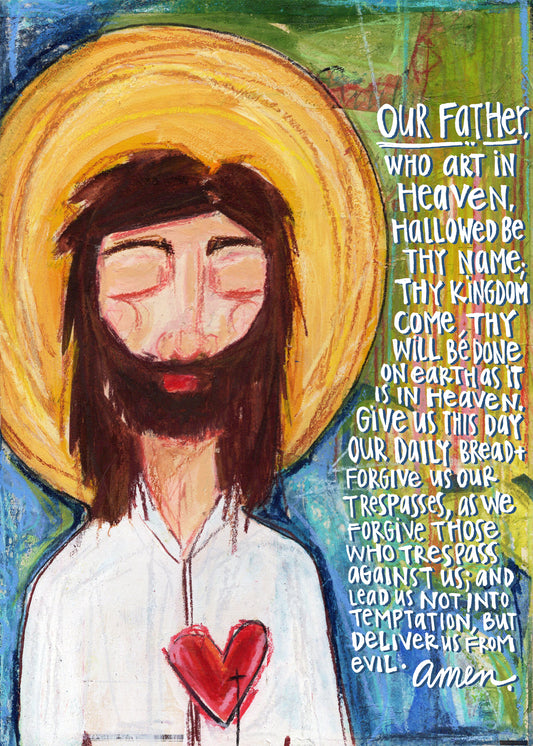 OUR FATHER,
WHO ART IN
HEAVEN,
HALLOWED BE
THY NAME;
THY KINGDOM
COME, THY
WILL BE DONE
ON EARTH AS IT
IS IN HEAVEN.
GIVE US THIS DAY
OUR DAILY BREAD +
FORGIVE US OUR
TRESPASSES, AS WE
FORGIVE THOSE
WHO TRESPASS
AGAINST US; AND
LEAD US NOT INTO
TEMPTATION, BUT
DELIVER US FROM
EVIL. amen.